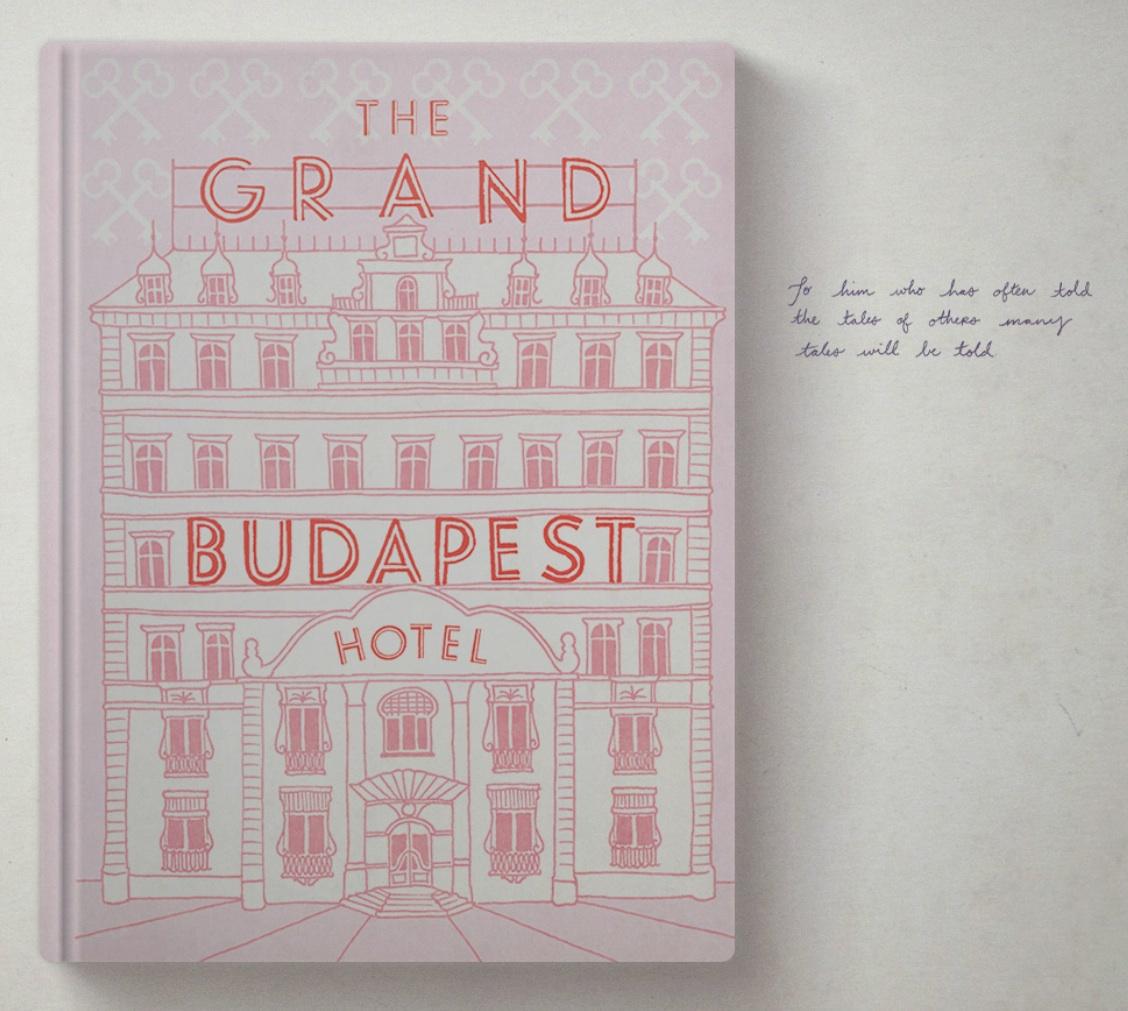 THE
GRAND
BUDAPEST
HOTEL
To him who has often told
the tales of others many
tales will be told